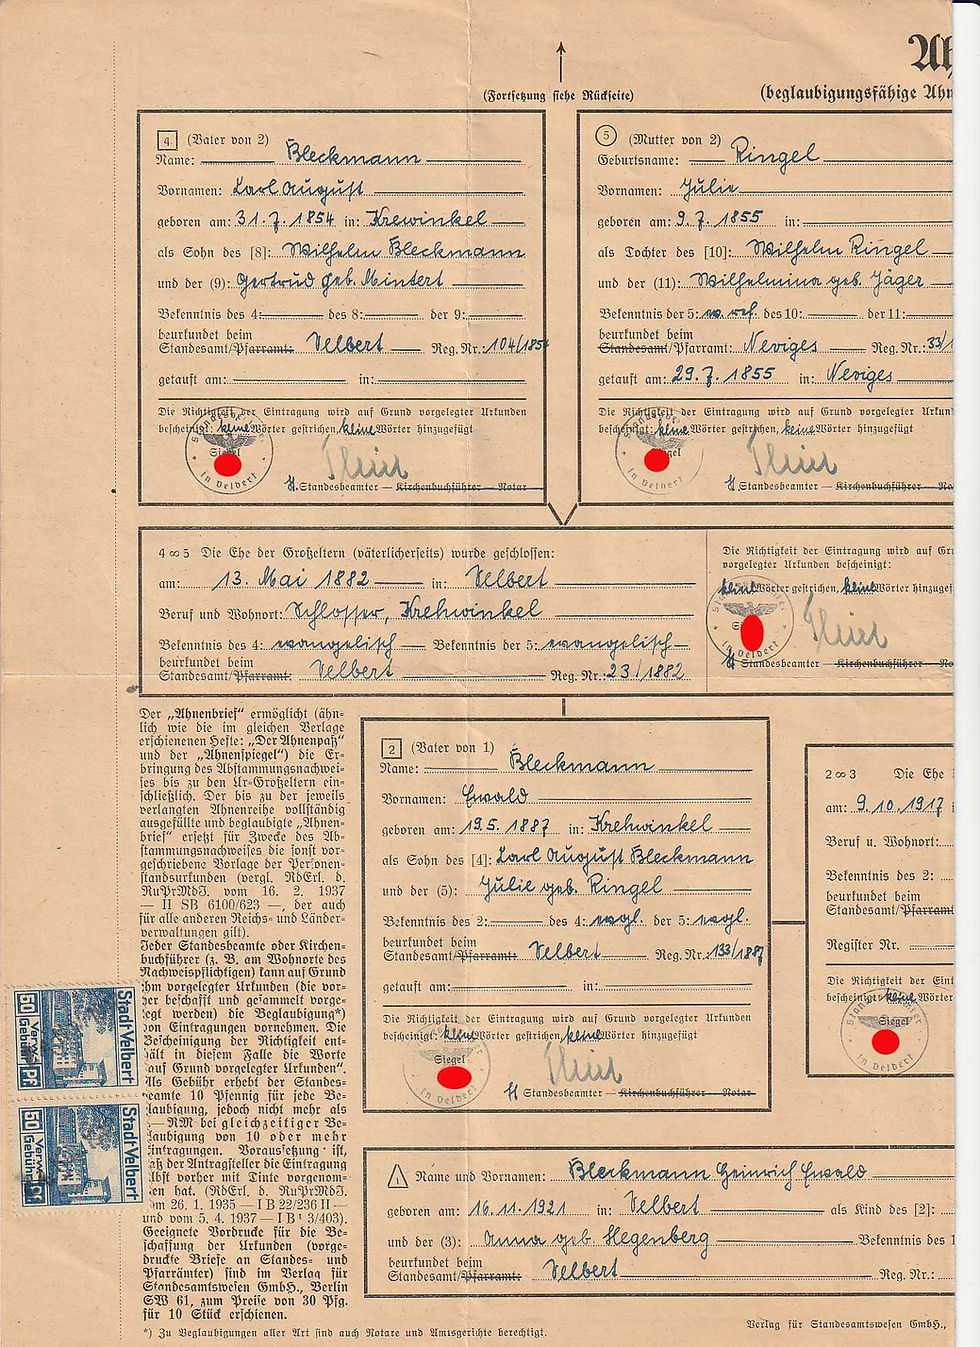 Ah
(Fortsetzung siehe Rückseite)
(beglaubigungsfähige Ahn
4 (Vater von 2)
Name: Bleckmann
Vornamen: Karl August
geboren am: 31.7.1854 in: Krewinkel
als Sohn des [8]: Wilhelm Bleckmann
und der (9): Gertrud geb. Mintert
Bekenntnis des 4: des 8: der 9:
beurkundet beim
Standesamt/Pfarramt: Velbert Reg. Nr.: 104/185
getauft am: in:
Die Richtigkeit der Eintragung wird auf Grund vorgelegter Urkunden
bescheinigt: keine Wörter gestrichen, keine Wörter hinzugefügt
Standesbeamter in Velbert
Siegel
Standesbeamter — Kirchenbuchführer — Notar
5 (Mutter von 2)
Geburtsname: Ringel
Vornamen: Julie
geboren am: 9.7.1855 in:
als Tochter des [10]: Wilhelm Ringel
und der (11): Wilhelmina geb. Jäger
Bekenntnis der 5: ev. ref. des 10: der 11:
beurkundet beim
Standesamt/Pfarramt: Neviges Reg. Nr.: 33/1
getauft am: 29.7.1855 in: Neviges
Die Richtigkeit der Eintragung wird auf Grund vorgelegter Urkun
bescheinigt: keine Wörter gestrichen, keine Wörter hinzugefügt
Standesbeamter in Velbert
Siegel
Standesbeamter — Kirchenbuchführer — No
4 ∞ 5 Die Ehe der Großeltern (väterlicherseits) wurde geschlossen:
am: 13. Mai 1882 in: Velbert
Beruf und Wohnort: Schlosser, Krehwinkel
Bekenntnis des 4: evangelisch — Bekenntnis der 5: evangelisch
beurkundet beim
Standesamt/Pfarramt: Velbert Reg. Nr.: 23/1882
Die Richtigkeit der Eintragung wird auf Gr
vorgelegter Urkunden bescheinigt:
keine Wörter gestrichen, keine Wörter hinzugef
Standesbeamter in Velbert
Standesbeamter — Kirchenbuchführer — No
Der „Ahnenbrief“ ermöglicht (ähn-
lich wie die im gleichen Verlage
erschienenen Hefte: „Der Ahnenpaß“
und der „Ahnenspiegel“) die Er-
bringung des Abstammungsnachwei-
ses bis zu den Ur-Großeltern ein-
schließlich. Der bis zu der jeweils
verlangten Ahnenreihe vollständig
ausgefüllte und beglaubigte „Ahnen-
brief“ ersetzt für Zwecke des Ab-
stammungsnachweises die sonst vor-
geschriebene Vorlage der Personen-
standsurkunden (vergl. RdErl. d.
RuPrMdJ. vom 16. 2. 1937
— II SB 6100/623 —, der auch
für alle anderen Reichs- und Länder-
verwaltungen gilt).
Jeder Standesbeamte oder Kirchen-
buchführer (z. B. am Wohnorte des
Nachweispflichtigen) kann auf Grund
ihm vorgelegter Urkunden (die vor-
her beschafft und gesammelt vorge-
legt werden) die Beglaubigung*)
von Eintragungen vornehmen. Die
Bescheinigung der Richtigkeit ent-
hält in diesem Falle die Worte
„auf Grund vorgelegter Urkunden“.
Als Gebühr erhebt der Standes-
beamte 10 Pfennig für jede Be-
glaubigung, jedoch nicht mehr als
— RM bei gleichzeitiger Be-
glaubigung von 10 oder mehr
Eintragungen. Voraussetzung ist,
daß der Antragsteller die Eintragung
selbst vorher mit Tinte vorgenom-
men hat. (RdErl. d. RuPrMdJ.
vom 26. 1. 1935 — I B 22/236 II —
und vom 5. 4. 1937 — I B¹ 3/403).
Geeignete Vordrucke für die Be-
schaffung der Urkunden (vorge-
druckte Briefe an Standes- und
Pfarrämter) sind im Verlag für
Standesamtswesen GmbH., Berlin
SW 61, zum Preise von 30 Pfg.
für 10 Stück erschienen.
Stadt Velbert
50 Verw. Gebühr 50 Pf.
Stadt Velbert
50 Verw. Gebühr Pf.
2 (Vater von 1)
Name: Bleckmann
Vornamen: Ewald
geboren am: 19.5.1887 in: Krehwinkel
als Sohn des [4]: Karl August Bleckmann
und der (5): Julie geb. Ringel
Bekenntnis des 2: des 4: evgl. der 5: evgl.
beurkundet beim
Standesamt/Pfarramt: Velbert Reg. Nr.: 133/1887
getauft am: in:
Die Richtigkeit der Eintragung wird auf Grund vorgelegter Urkunden
bescheinigt: keine Wörter gestrichen, keine Wörter hinzugefügt
Siegel
in Velbert
Standesbeamter — Kirchenbuchführer — Notar
2 ∞ 3 Die Ehe
am: 9.10.1917 i
Beruf u. Wohnort:
Bekenntnis des 2:
beurkundet beim
Standesamt/Pfarramt
Register Nr.
Die Richtigkeit der Eint
bescheinigt: keine Wörter
Standesbeamter in Velbert
Siegel
1 Name und Vornamen: Bleckmann Heinrich Ewald
geboren am: 16.11.1921 in: Velbert als Kind des [2]:
und der (3): Anna geb. Hegenberg Bekenntnis des 1
beurkundet beim
Standesamt/Pfarramt: Velbert Reg. Nr.:
*) Zu Beglaubigungen aller Art sind auch Notare und Amtsgerichte berechtigt.
Verlag für Standesamtswesen GmbH.,